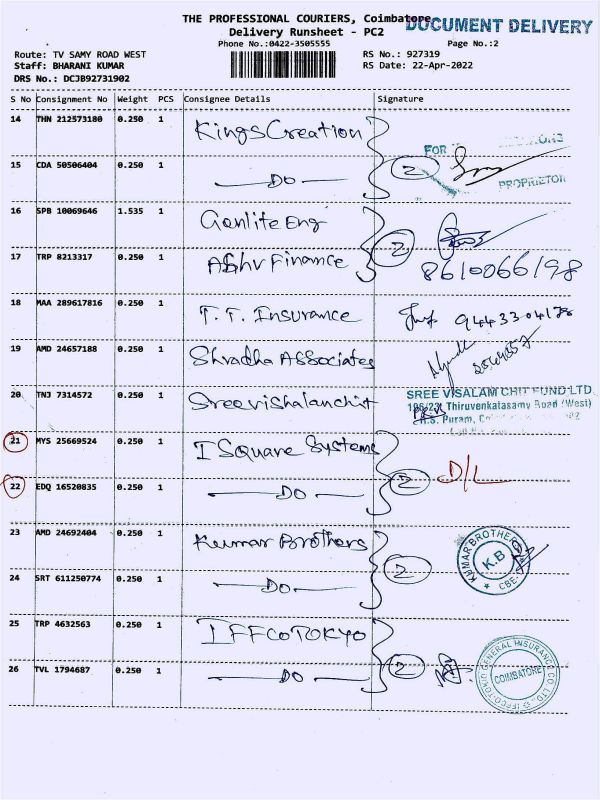 THE PROFESSIONAL COURIERS, Coimbatore
DOCUMENT DELIVERY
Delivery Runsheet - PC2
Phone No.:0422-3505555
Page No.:2
Route: TV SAMY ROAD WEST
RS No.: 927319
Staff: BHARANI KUMAR
RS Date: 22-Apr-2022
DRS No.: DCJB92731902
S No Consignment No Weight PCS Consignee Details Signature
14 THN 212573180 0.250 1 Kings Creation
FOR
15 CDA 50506404 0.250 1 DO 2
PROPRIETOR
16 SPB 10069646 1.535 1 Ganlite Eng 2
17 TRP 8213317 0.250 1 Finance 8610066198
18 MAA 289617816 0.250 1 T.T. Insurance
19 AMD 24657188 0.250 1 Shradha Associates
20 TNJ 7314572 0.250 1 Sree vishalanchit
SREE VISALAM CHIT FUND LTD
196/23, Thiruvenkatasamy Road (West)
R.S. Puram,
21 MYS 25669524 0.250 1 I Square Systems D/L
22 EDQ 16520835 0.250 1 DO 2
23 AMD 24692404 0.250 1 Kumar Brothers 2
KUMAR BROTHERS
K.B
CBE
24 SRT 611250774 0.250 1 DO
25 TRP 4632563 0.250 1 IFFCO TOKYO
26 TVL 1794687 0.250 1 DO 2
IFFCO-TOKIO GENERAL INSURANCE CO LTD.
COIMBATORE